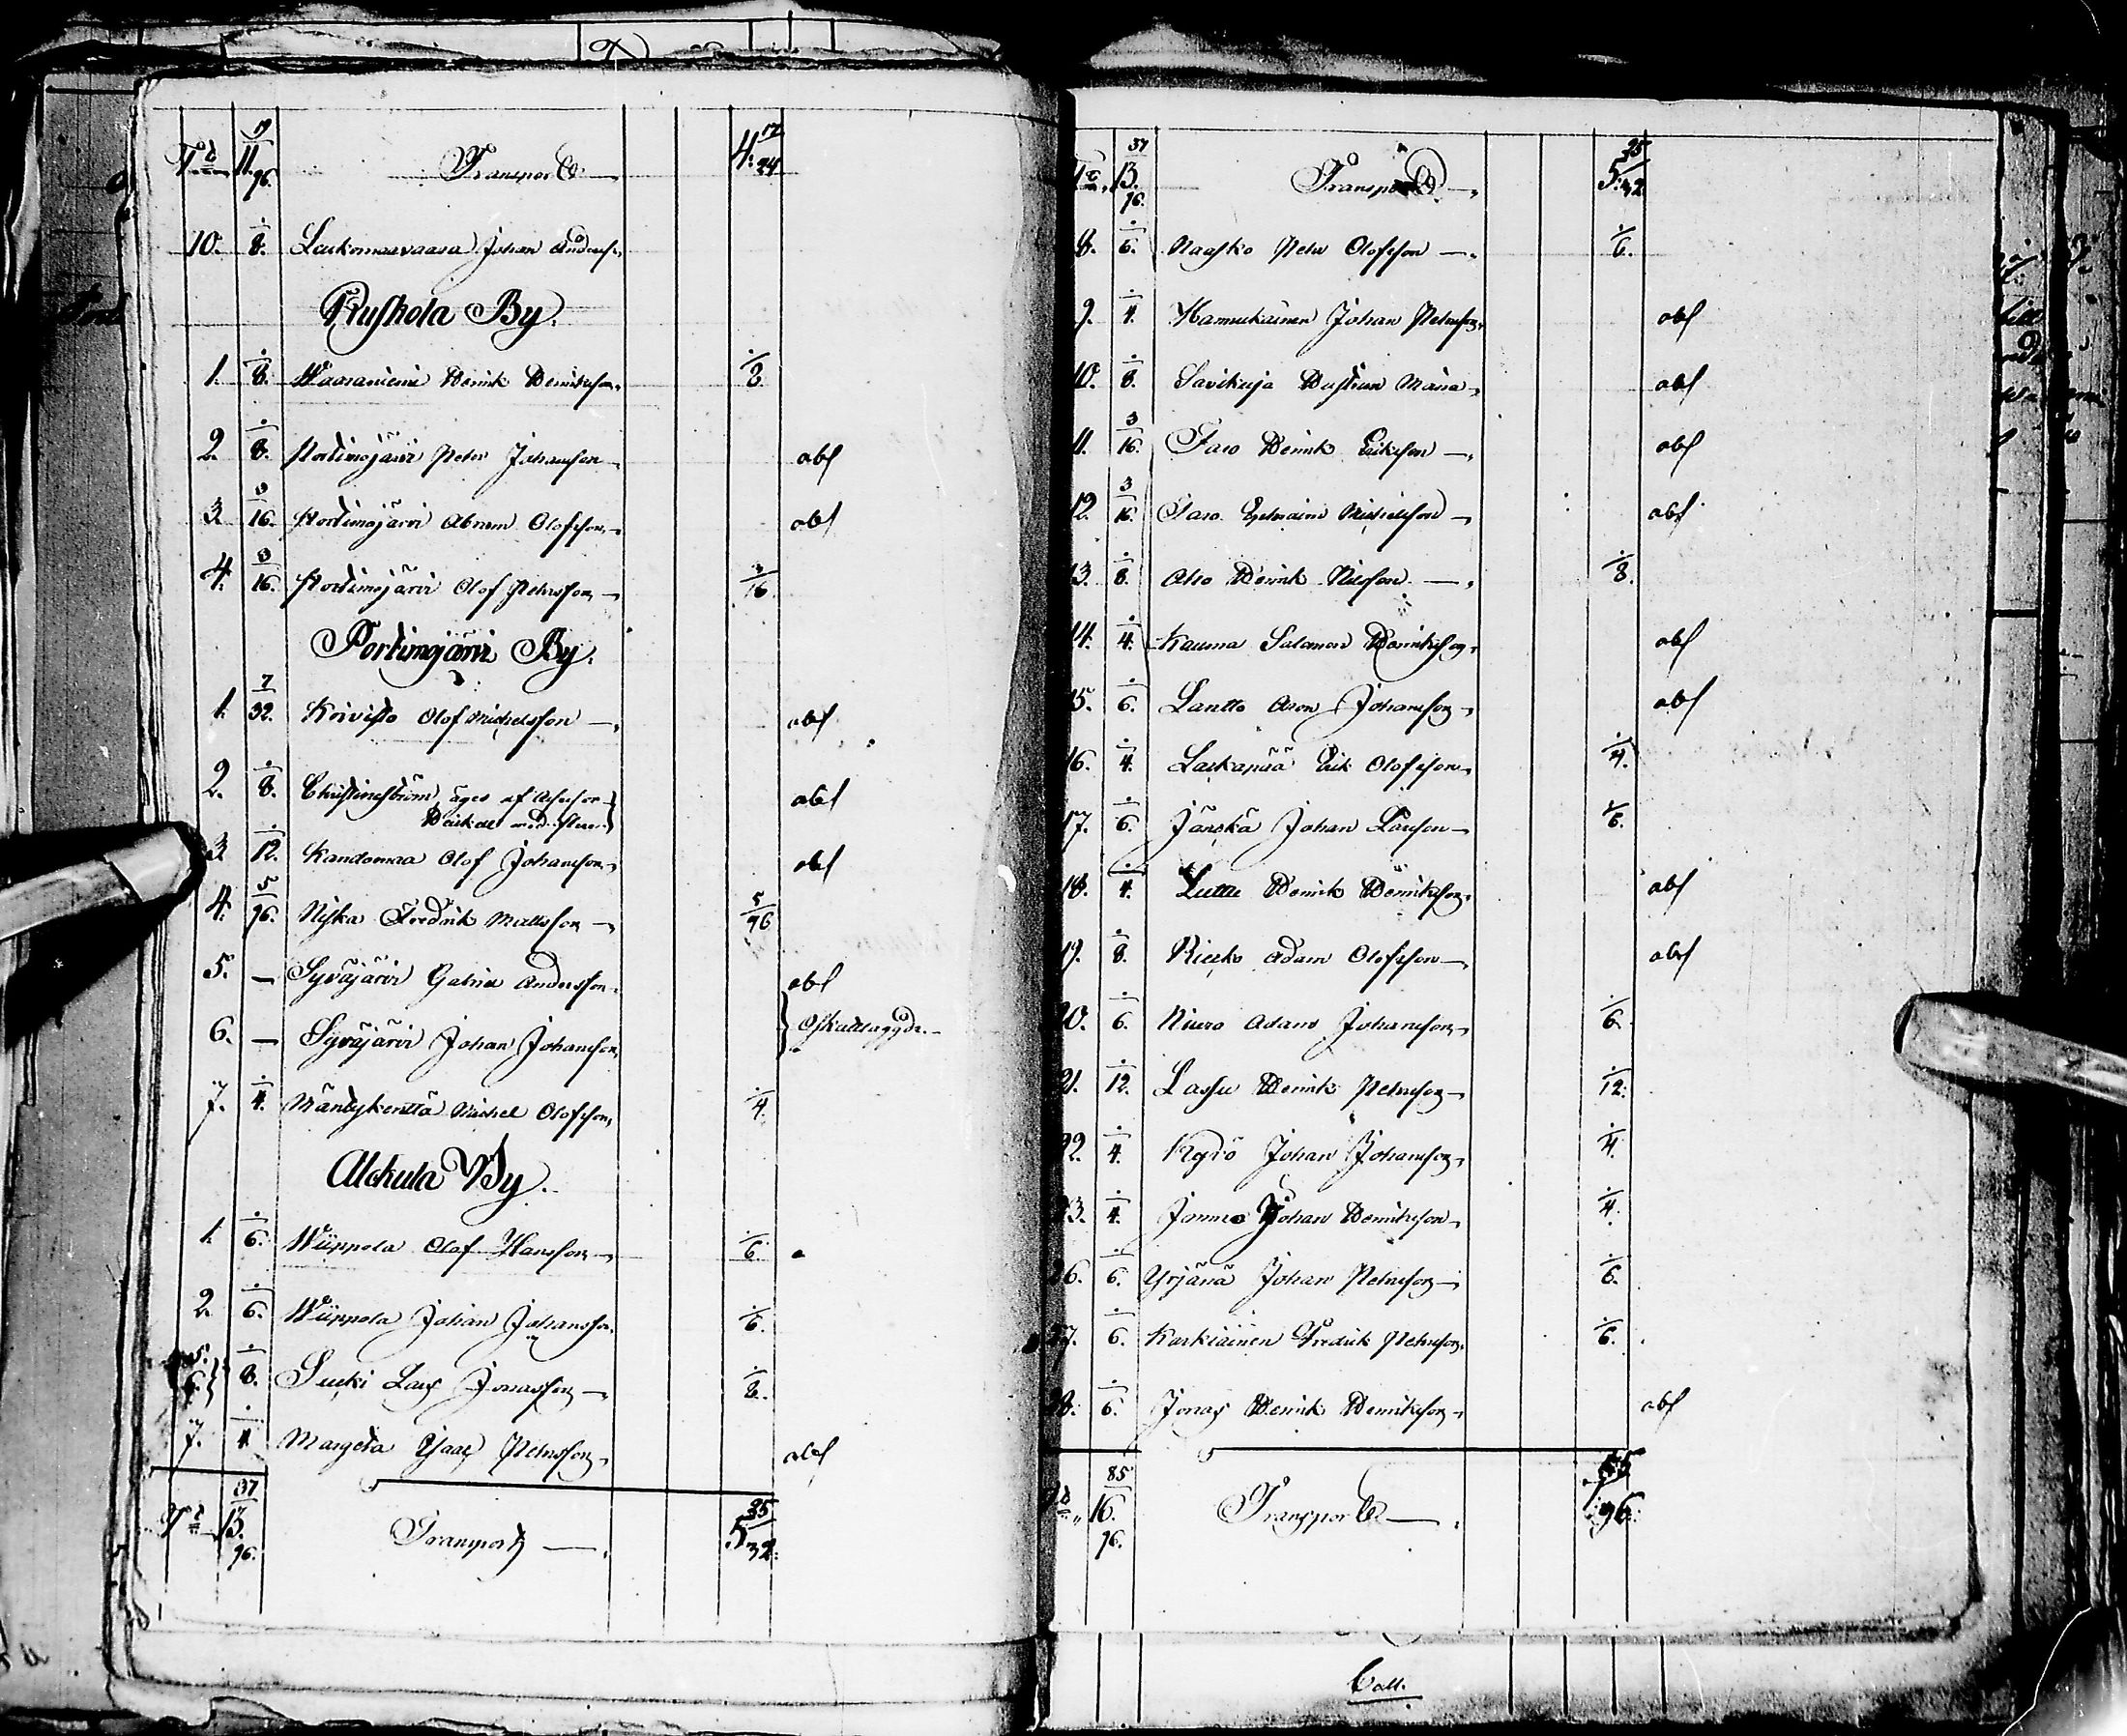 Transport 4 17/24
10. 1/8. Leukomaavaara Johan Anderss.
Ruskola By.
1. 1/8. Waaraniemi Henrik Henriksson 1/8
2. 1/8. Portimojärvi Peter Johansson abs
3. 3/16. Portimojärvi Abram Olofsson abs
4. 3/16. Portimojärvi Olof Petersson 3/16
Portimojärvi By.
1. 7/32. Koivisto Olof Michelsson abs
2. 1/8. Christineström, äges af Assessor abs
med flere
3. 1/12. Kandomaa Olof Johansson abs
4. 5/96. Niska Fredrik Mattsson 5/96
5. — Syväjärvi Gabriel Andersson abs
6. — Syväjärvi Johan Johansson Oskattlaggde
7. 1/4. Mändykenttä Michel Olofsson 1/4
Alckula By.
1. 1/6. Wiippola Olof Hansson 1/6
2. 1/6. Wiippola Johan Johansson 1/6.
5. 6. 1/8. Sucki Lars Jonasson 1/8.
7. 1/4 Margeta Isaac Petersson abs
13. 37/96. Transport 5 25/32.
13. 37/96. Transport 5 25/32
8. 1/6. Naasko Peter Olofsson 1/6.
9. 1/4. Hannukainen Johan Petersson abs
10. 1/8. Savikuja Hustrun Maria abs
11. 3/16. Taro Henrik Eriksson abs
12. 3/16. Taro Ephraim Michelsson abs
13. 1/8. Aho Henrik Nilsson 1/8.
14. 1/4. Kauma Salomon Henriksson abs
15. 1/6. Lantto Aron Johansson abs
16. 1/4. Laskanpää Erik Olofsson 1/4.
17. 1/6. Jänskä Johan Larsson 1/6.
18. 1/4. Luttu Henrik Henriksson abs
19. 1/8. Riecko Adam Olofsson abs
20. 1/6. Niuro Adam Johansson 1/6.
21. 1/12. Lassu Henrik Petersson 1/12.
22. 1/4. Kyrö Johan Johansson 1/4.
23. 1/4. Johan Henriksson 1/4.
26. 1/6. Yrjänä Johan Petersson 1/6.
27. 1/6. Karkiainen Fredrik Petersson 1/6.
28. 1/6. Jonas Henrik Henriksson abs
16. 85/96. Transport 7 55/96.